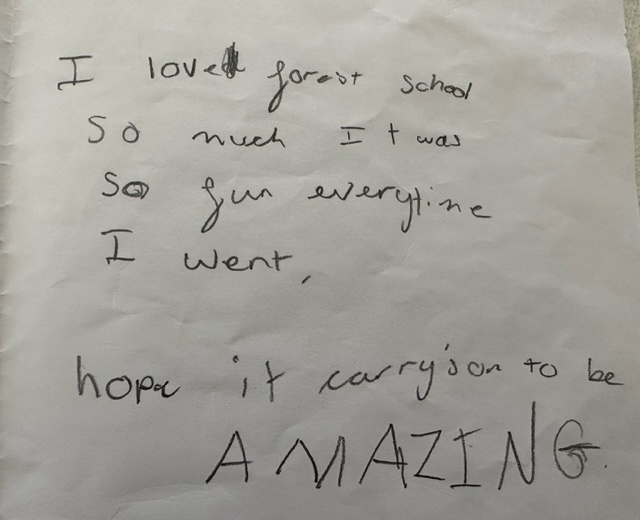 I loved forest school
So much It was
So fun everytime
I went,
hope it carry's on to be
AMAZING.